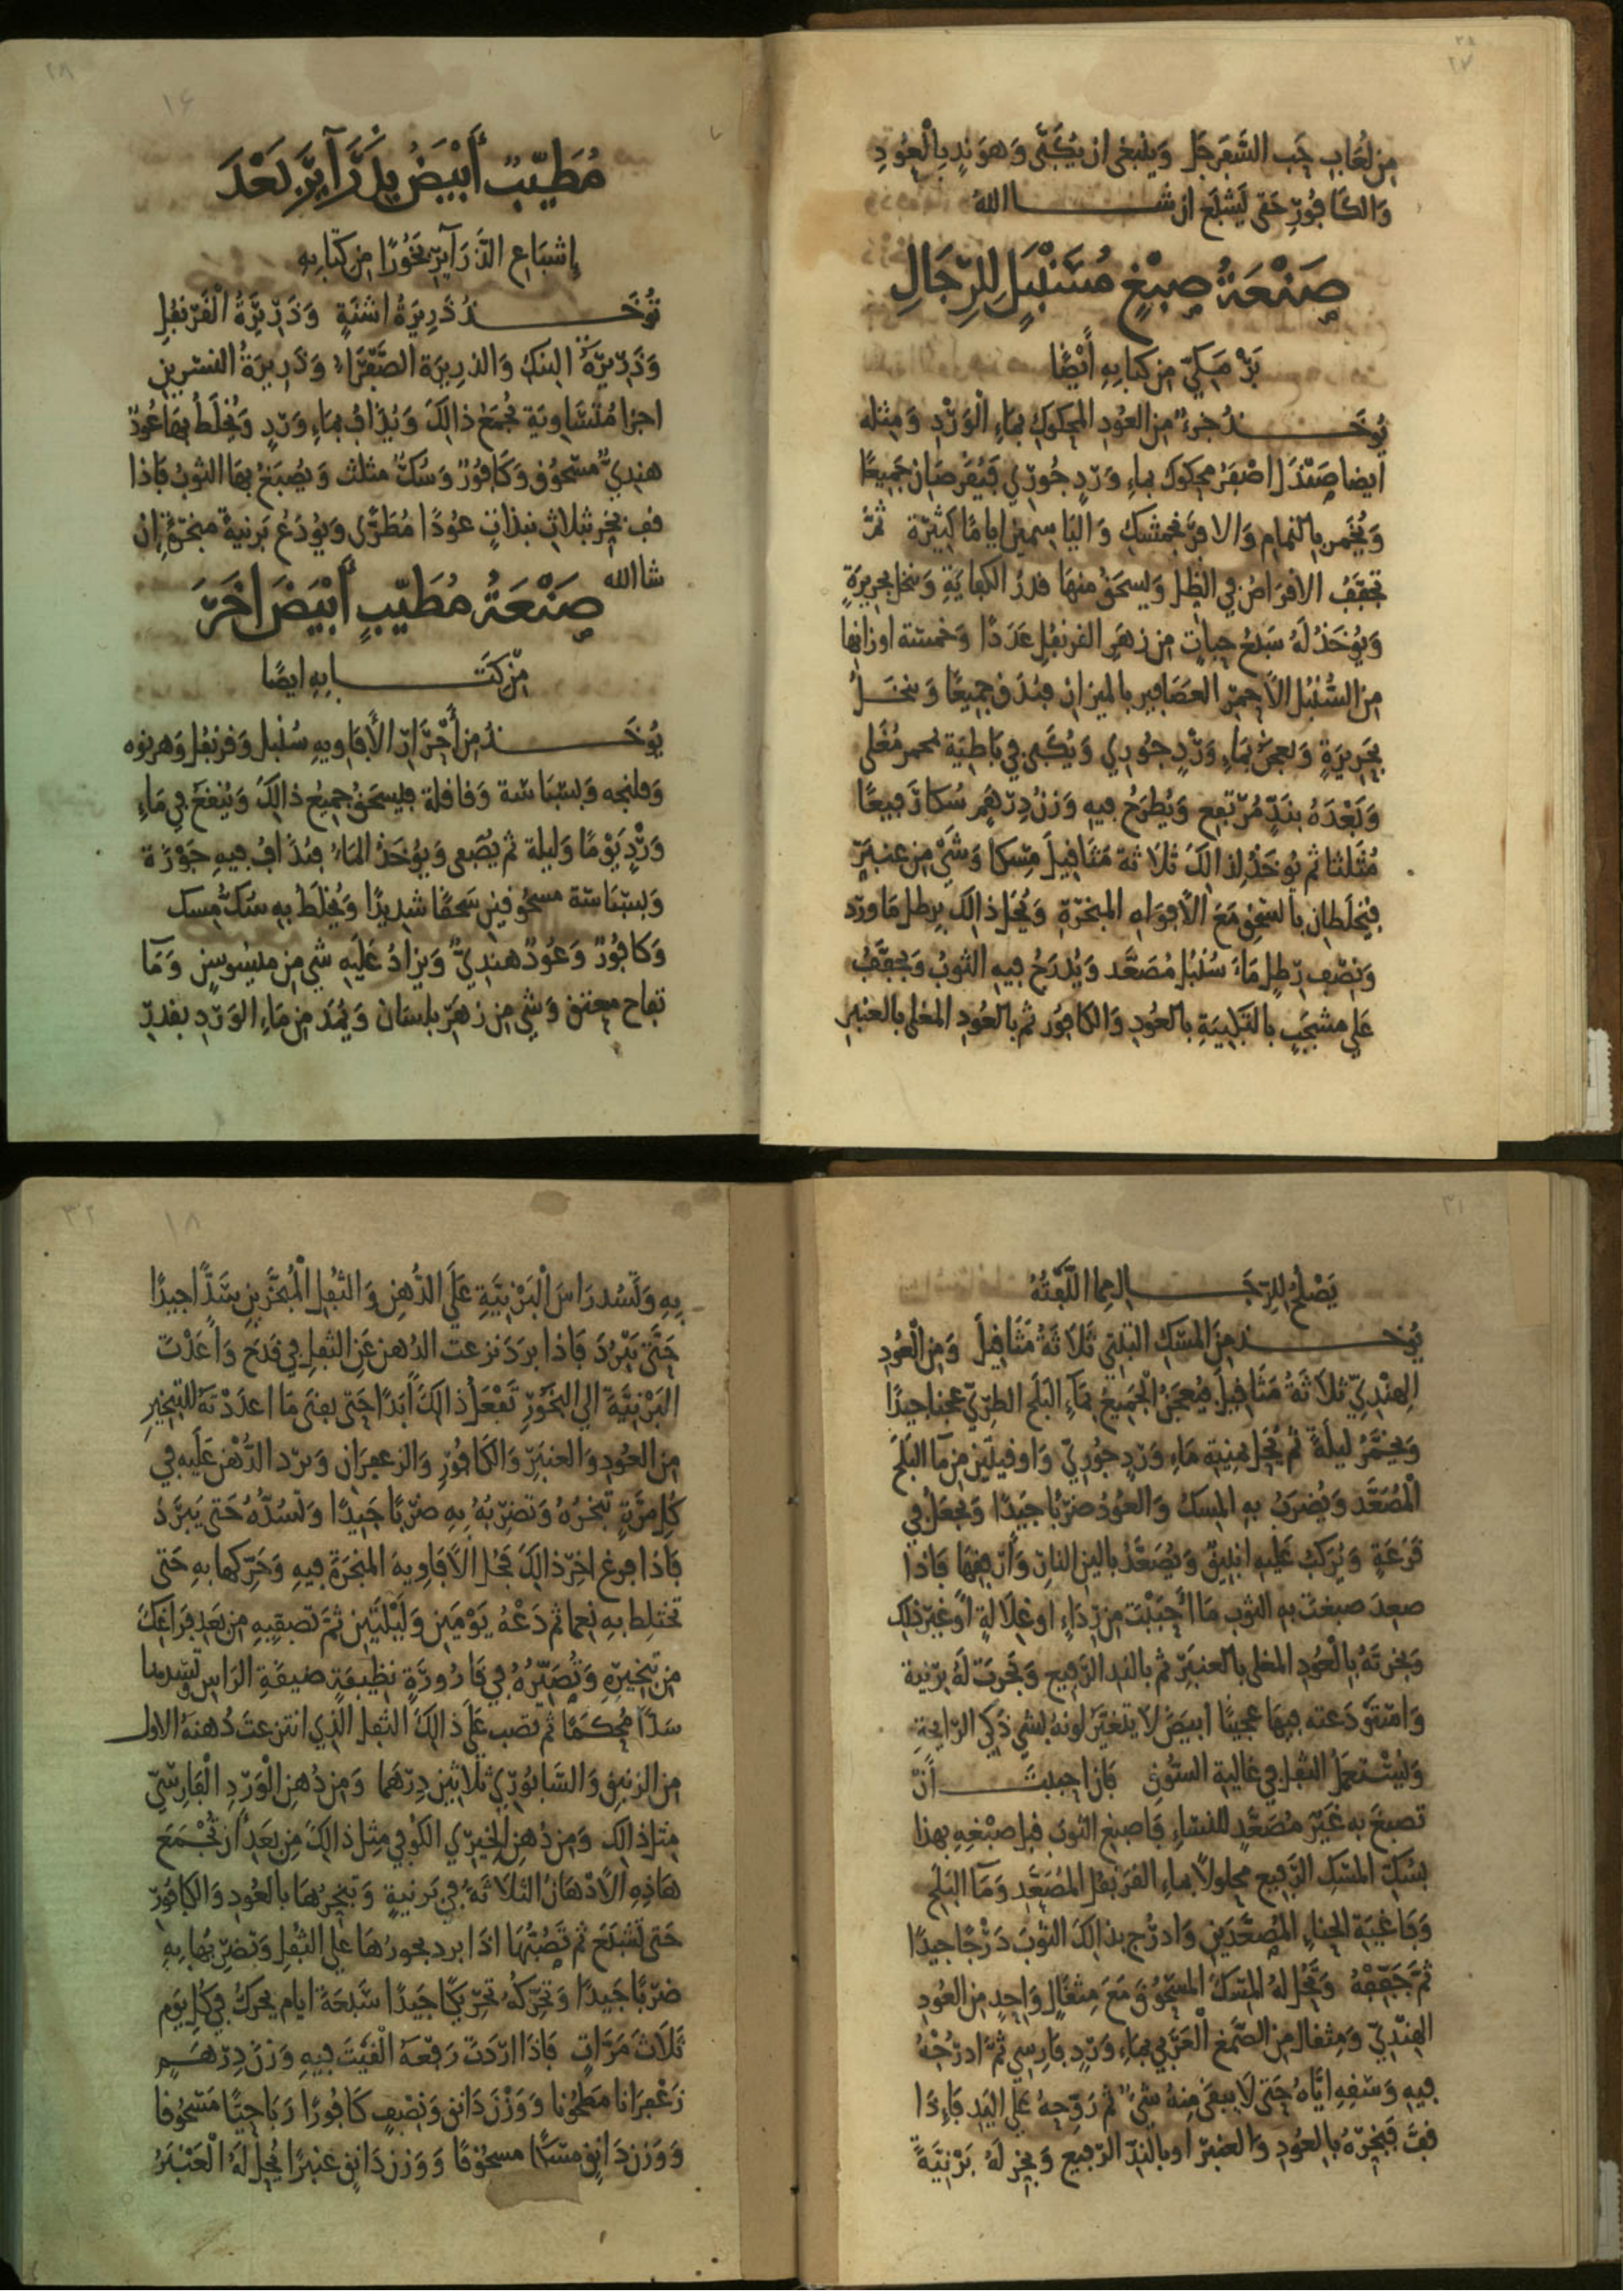 ٢٧
من لعاب حب السفرجل وينبغي ان يكبى وهو ند بالعود
والكافور حتى يشبع ان شـــا الله
صنعة صبغ مسنبل للرجال
برمكي من كتابه أيضًا
يوخـــذ جزء من العود المحكوك بماء الورد ومثله
ايضا صندل اصفر محكوك بماء ورد جوري فيقرصان جميعًا
ويخمر بالنمام والافرنجمشك والياسمين اياما كثيرة ثم
تجفف الاقراص في الظل ويسحق منها قدر الكفاية وينخل بحريرة
ويؤخذ له سبع حبات من زهر القرنفل عددًا وخمسة اوزانها
من السنبل الاحمر العصافير بالميزان فيدق جميعًا وينخــل
بحريرة ويعجن بماء ورد جوري ويكبى في باطية بحمر مغلى
وبعده بند مرتفع ويطرح فيه وزن درهم سكا رفيعًا
مثلثا ثم يوخذ لذالك ثلاثة مثاقيل مسكا وشي من عنبر
فيخلطان بالسحق مع الأفواه المبخرة ويحل ذالك برطل ماورد
ونصف رطل ماء سنبل مصعد ويدرج فيه الثوب ويجفف
على مشجب بالتكبية بالعود والكافور ثم بالعود المغلى بالعنبر
٢٨
١٦
مطيب أبيض بذرآير بعد
إشباع الذرآير بخورًا من كتابه
تؤخـــذ ذريرة اشنة وذريرة القرنفل
وذريرة البنك والذريرة الصفراء وذريرة النسرين
اجزا متساوية تجمع ذالك ويذاف بماء ورد ويخلط بها عود
هندي مسحوق وكافور وسك مثلث ويصبغ بها الثوب فاذا
قب بخر بثلاث نبذات عودا مطرى ويودع برنية مبخرة إن
شا الله
صنعة مطيب أبيض اخر
من كتـــابه ايضًا
يوخـــذ من أحرار الأفاويه سنبل وقرنفل وهرنوه
وفلنجه وبسباسة وقاقلة فليسحق جميع ذالك وينقع في ماء
ورد يومًا وليلة ثم يصفى ويؤخذ الماء فيذاف فيه جوزة
وبسباسة مسحوقين سحقًا شديدًا ويخلط به سك مسك
وكافور وعود هندي ويزاد عليه شي من ميسوسن ومآ
تفاح معتق وشي من زهر بلسان ويمد من ماء الورد بقدر
٣١
يصلح للرجـــال مما اللفته
يوخـــذ من المسك التبتي ثلاثة مثاقيل ومن العود
الهندي ثلاثة مثاقيل فيعجن الجميع بماء البلح الطري عجنا جيدًا
ويخمر ليلة ثم يحل بمنية ماء ورد جوري واوقيتين من مآ البلح
المصعد ويضرب به المسك والعود ضربا جيدًا ويجعل في
قرعة ويركب عليه انبيق ويصعد بالين النار وأرفقها فاذا
صعد صبغت به الثوب ما احببت من رداء او غلالة أو غير ذلك
وبخرته بالعود المغلى بالعنبر ثم بالند الرفيع وبخرت له برنية
وامتى دعته فيها عجيبًا ابيض لا يتغير لونه بشي ذكي الرايحة
وليستعمل الثفل في غالية السوق فان احببـــت ان
تصبغ به غير مصعد للنساء فاصبغ الثوب قبل صبغه بهذا
بسك المسك الرفيع محلولاً بماء القرنفل المصعد ومآ البلح
وفاغية الحناء المصعدين وادرج بذالك الثوب درجًا جيدًا
ثم جففه وتحل له المسك المسحوق مع مثقال واحد من العود
الهندي ومثقال من الصمغ العربي بماء ورد فارسي ثم ادرجه
فيه وسفه اياه حتى لا يبقى منه شيء ثم روحه على اليد فإذا
قب فبخره بالعود والعنبر او بالند الرفيع وبخر له برنية
٣٢
١٨
به وتسد راس البرنية على الدهن والثفل المبخرين سدا جيدًا
حتى يبرد فاذا برد نزعت الدهن عن الثفل في قدح واعدت
البرنية الى البخور تفعل ذالك أبدًا حتى يفنى ما اعددته للتبخير
من العود والعنبر والكافور والزعفران وترد الدهن عليه في
كل مرة تبخره وتضربه به ضربًا جيدًا وتسده حتى يبرد
فاذا فرغ اخر ذالك فحل الأفاويه المبخرة فيه وحركها به حتى
تختلط به نعما ثم دعه يومين وليلتين ثم تصفيه من بعد فراغك
من تبخيره وتصيره في قارورة نظيفة ضيقة الراس وتسدها
سدًا محكمًا ثم تصب على ذالك الثفل الذي انتزعت دهنه الاول
من الزنبق والسابوري ثلاثين درهما ومن دهن الورد الفارسي
مثل ذالك ومن دهن الخيري الكوفي مثل ذالك من بعد أن تجمع
هاذه الأدهان الثلاثة في برنية وتبخرها بالعود والكافور
حتى تشبع ثم تصبها اذا برد بخورها على الثفل وتضربها به
ضربًا جيدًا وتحركه تحريكًا جيدًا سبعة ايام يحرك في كل يوم
ثلاث مرات فاذا اردت رفعه القيت فيه وزن درهم
زعفرانا مطحونا ووزن دانق ونصف كافورًا رباحيًا مسحوقا
ووزن دانق مسكًا مسحوقًا ووزن دانق عنبرًا يحل له العنبر